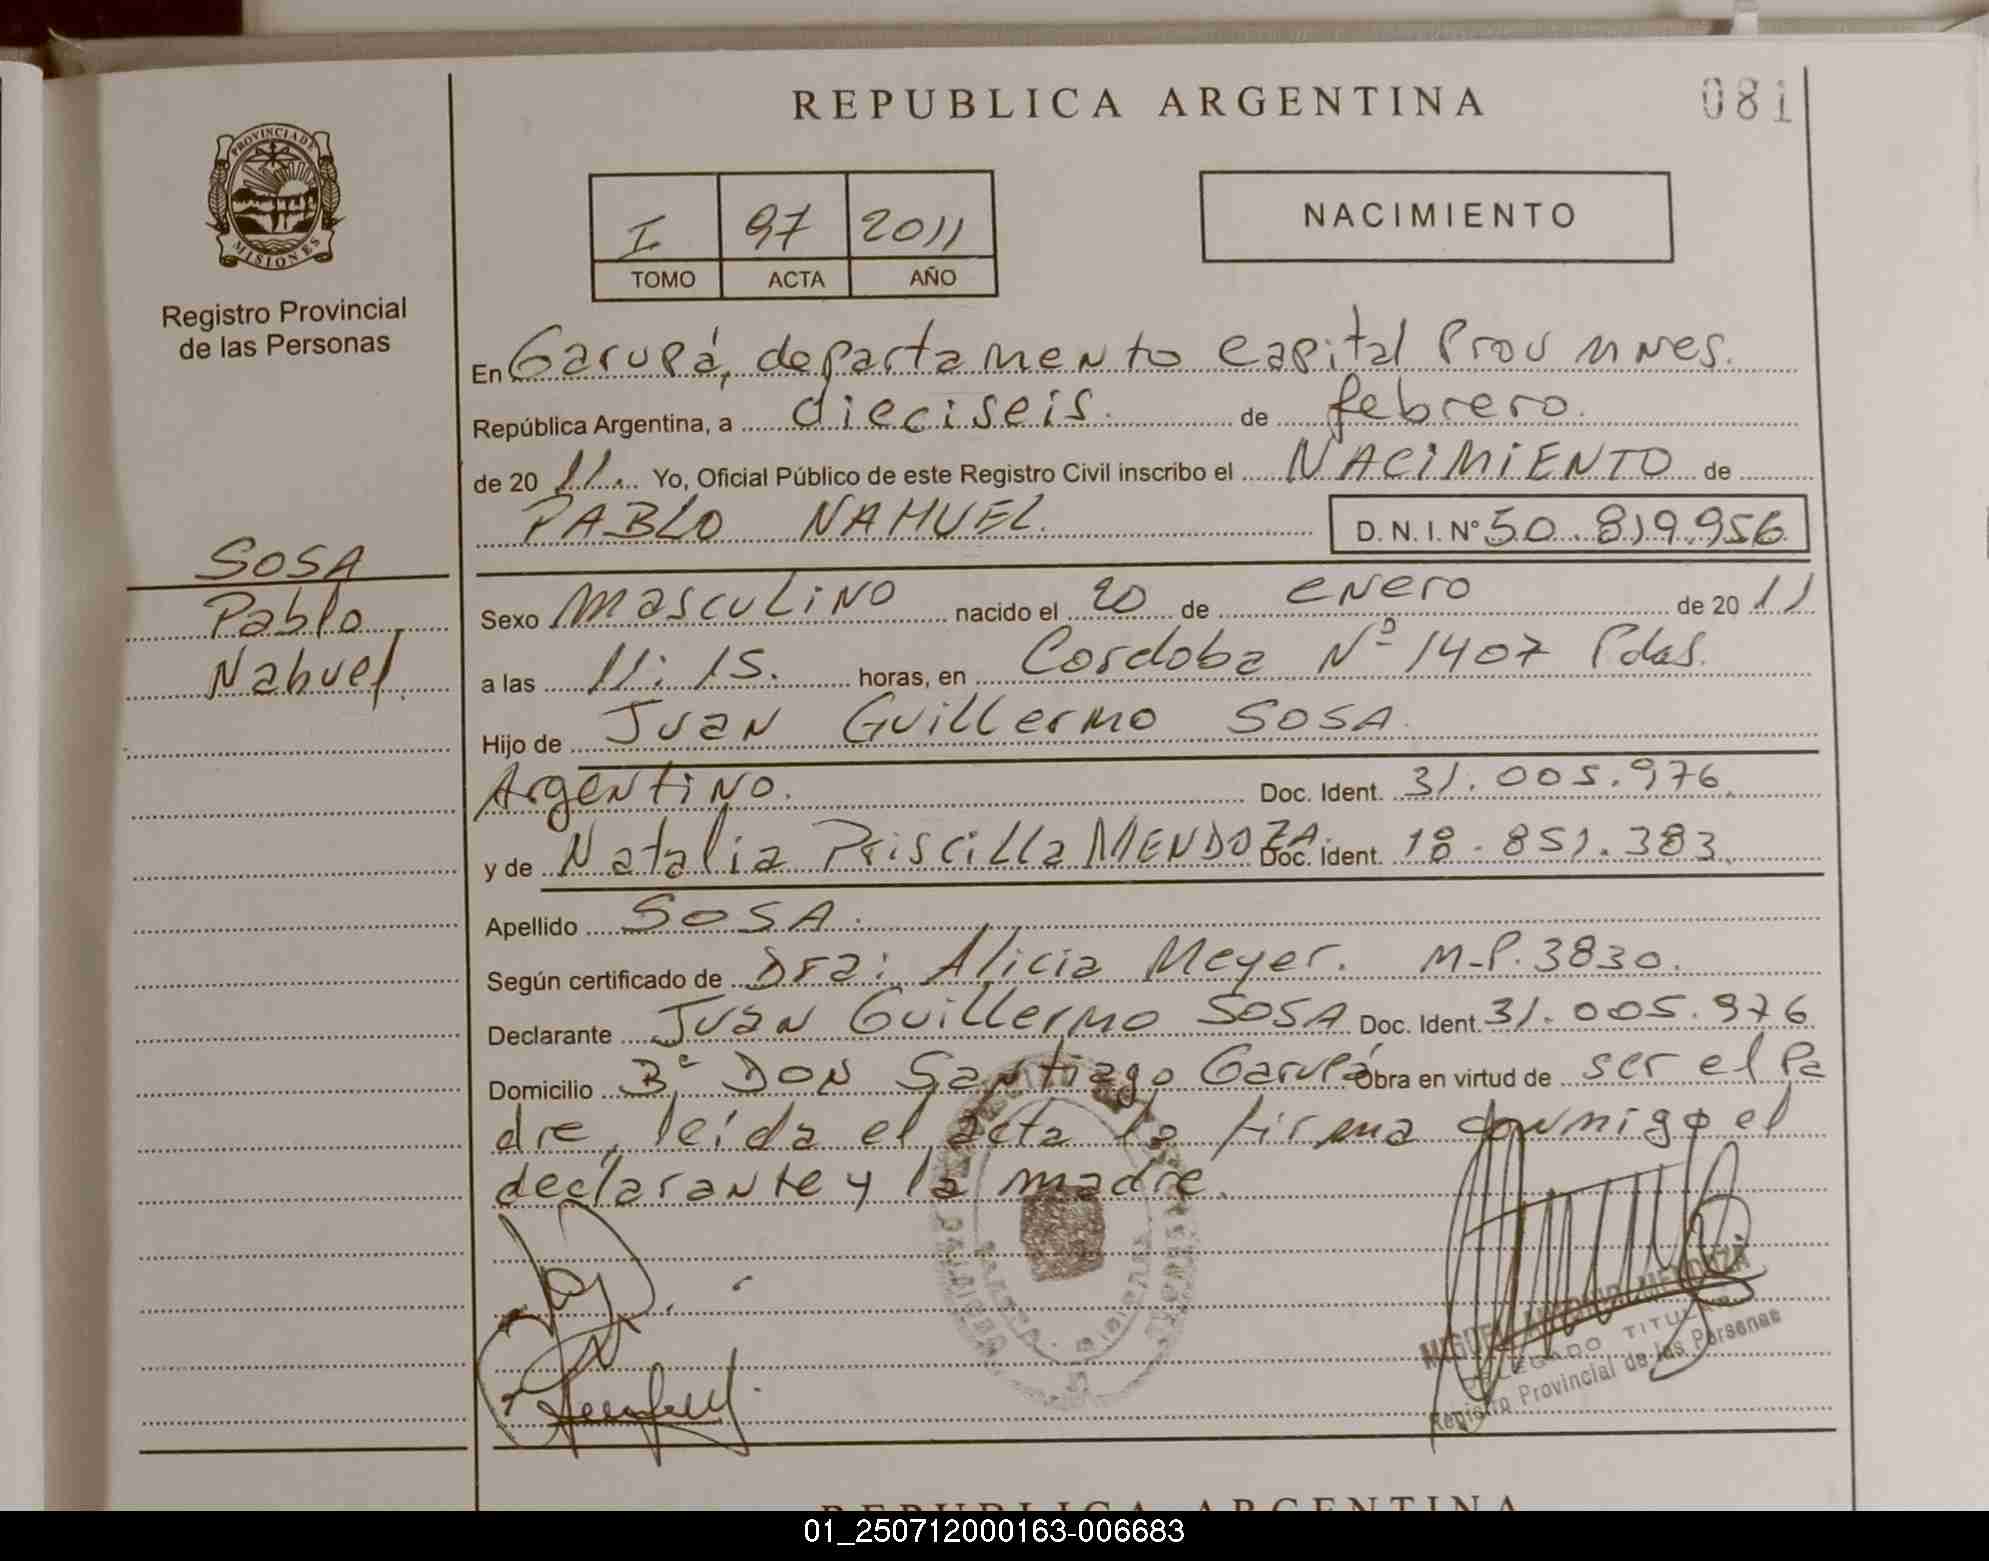 REPUBLICA ARGENTINA
081
PROVINCIA DE
MISIONES
Registro Provincial
de las Personas
I 97 2011
TOMO ACTA AÑO
NACIMIENTO
En Garupá, departamento Capital Prov Mnes.
República Argentina, a dieciseis. de febrero.
de 20 11. Yo, Oficial Público de este Registro Civil inscribo el NACIMIENTO de
PABLO NAHUEL. D. N. I. Nº 50.819.956
SOSA
Pablo
Nahuel.
Sexo masculino nacido el 20 de enero de 20 11
a las 11:15. horas, en Cordoba Nº 1407 Pdas.
Hijo de Juan Guillermo SOSA.
Argentino. Doc. Ident. 31.005.976.
y de Natalia Priscilla MENDOZA. Doc. Ident. 18.851.383.
Apellido SOSA.
Según certificado de Dra: Alicia Meyer. M.P. 3830.
Declarante Juan Guillermo SOSA Doc. Ident. 31.005.976
Domicilio Bº Don Santiago Garupá Obra en virtud de ser el Pa
dre, leída el acta la firma conmigo el
declarante y la madre.
MIGUEL MENDOZA
DELEGADO TITULAR
Registro Provincial de las Personas
REPUBLICA ARGENTINA
01_250712000163-006683